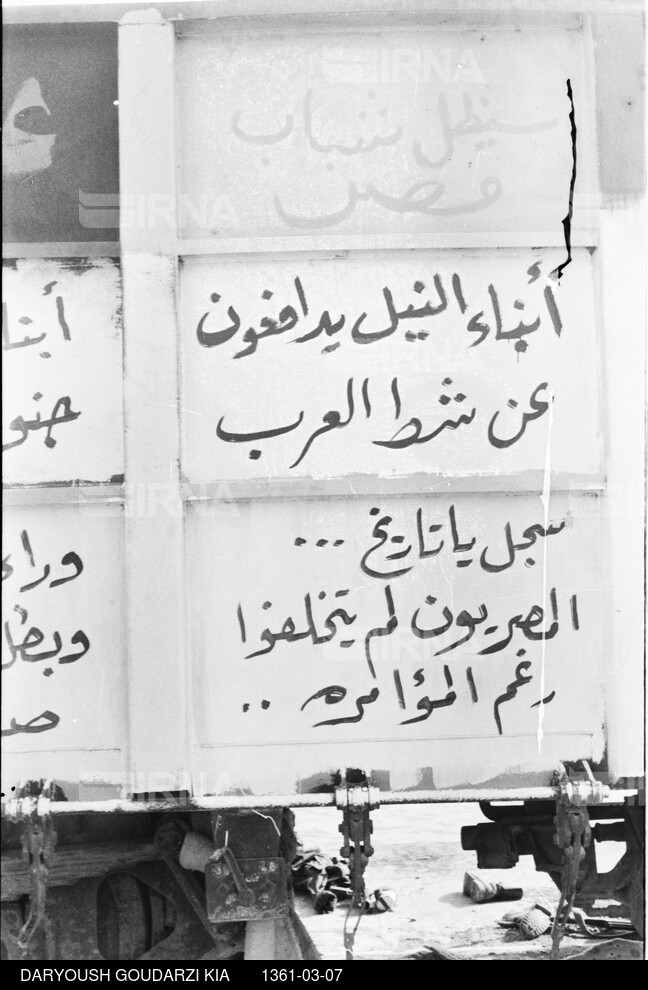 سيظل شباب
مصر
أبناء النيل يدافعون
عن شط العرب
سجل يا تاريخ ...
المصريون لم يتخلفوا
رغم المؤامره ..
أبنا
جنو
وراء
وبطل
صد
IRNA
DARYOUSH GOUDARZI KIA 1361-03-07